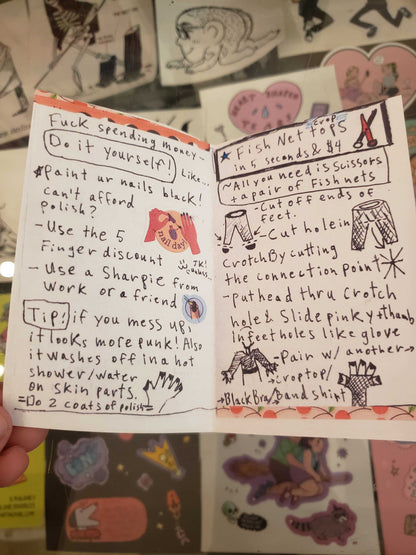 Fuck spending money -
Do it yourself! Like...
Paint ur nails black!
can't afford
polish?
- Use the 5
Finger discount
JK!
- Use a Sharpie from
work or a friend
nail day!
Tip! if you mess up,
it looks more punk! Also
it washes off in a hot
shower/water
on skin parts.
=Do 2 coats of polish=
crop
Fish Net Tops
in 5 seconds & $4
~All you need is Scissors
+ a pair of Fish nets
- Cut off ends of
feet.
- Cut hole in
Crotch By cutting
the connection Point
- Put head thru Crotch
hole & Slide pinky + thumb
in feet holes like glove
- Pair w/ another →
croptop/
→ Black Bra/Band shirt
HEART SHAPED
TEARS